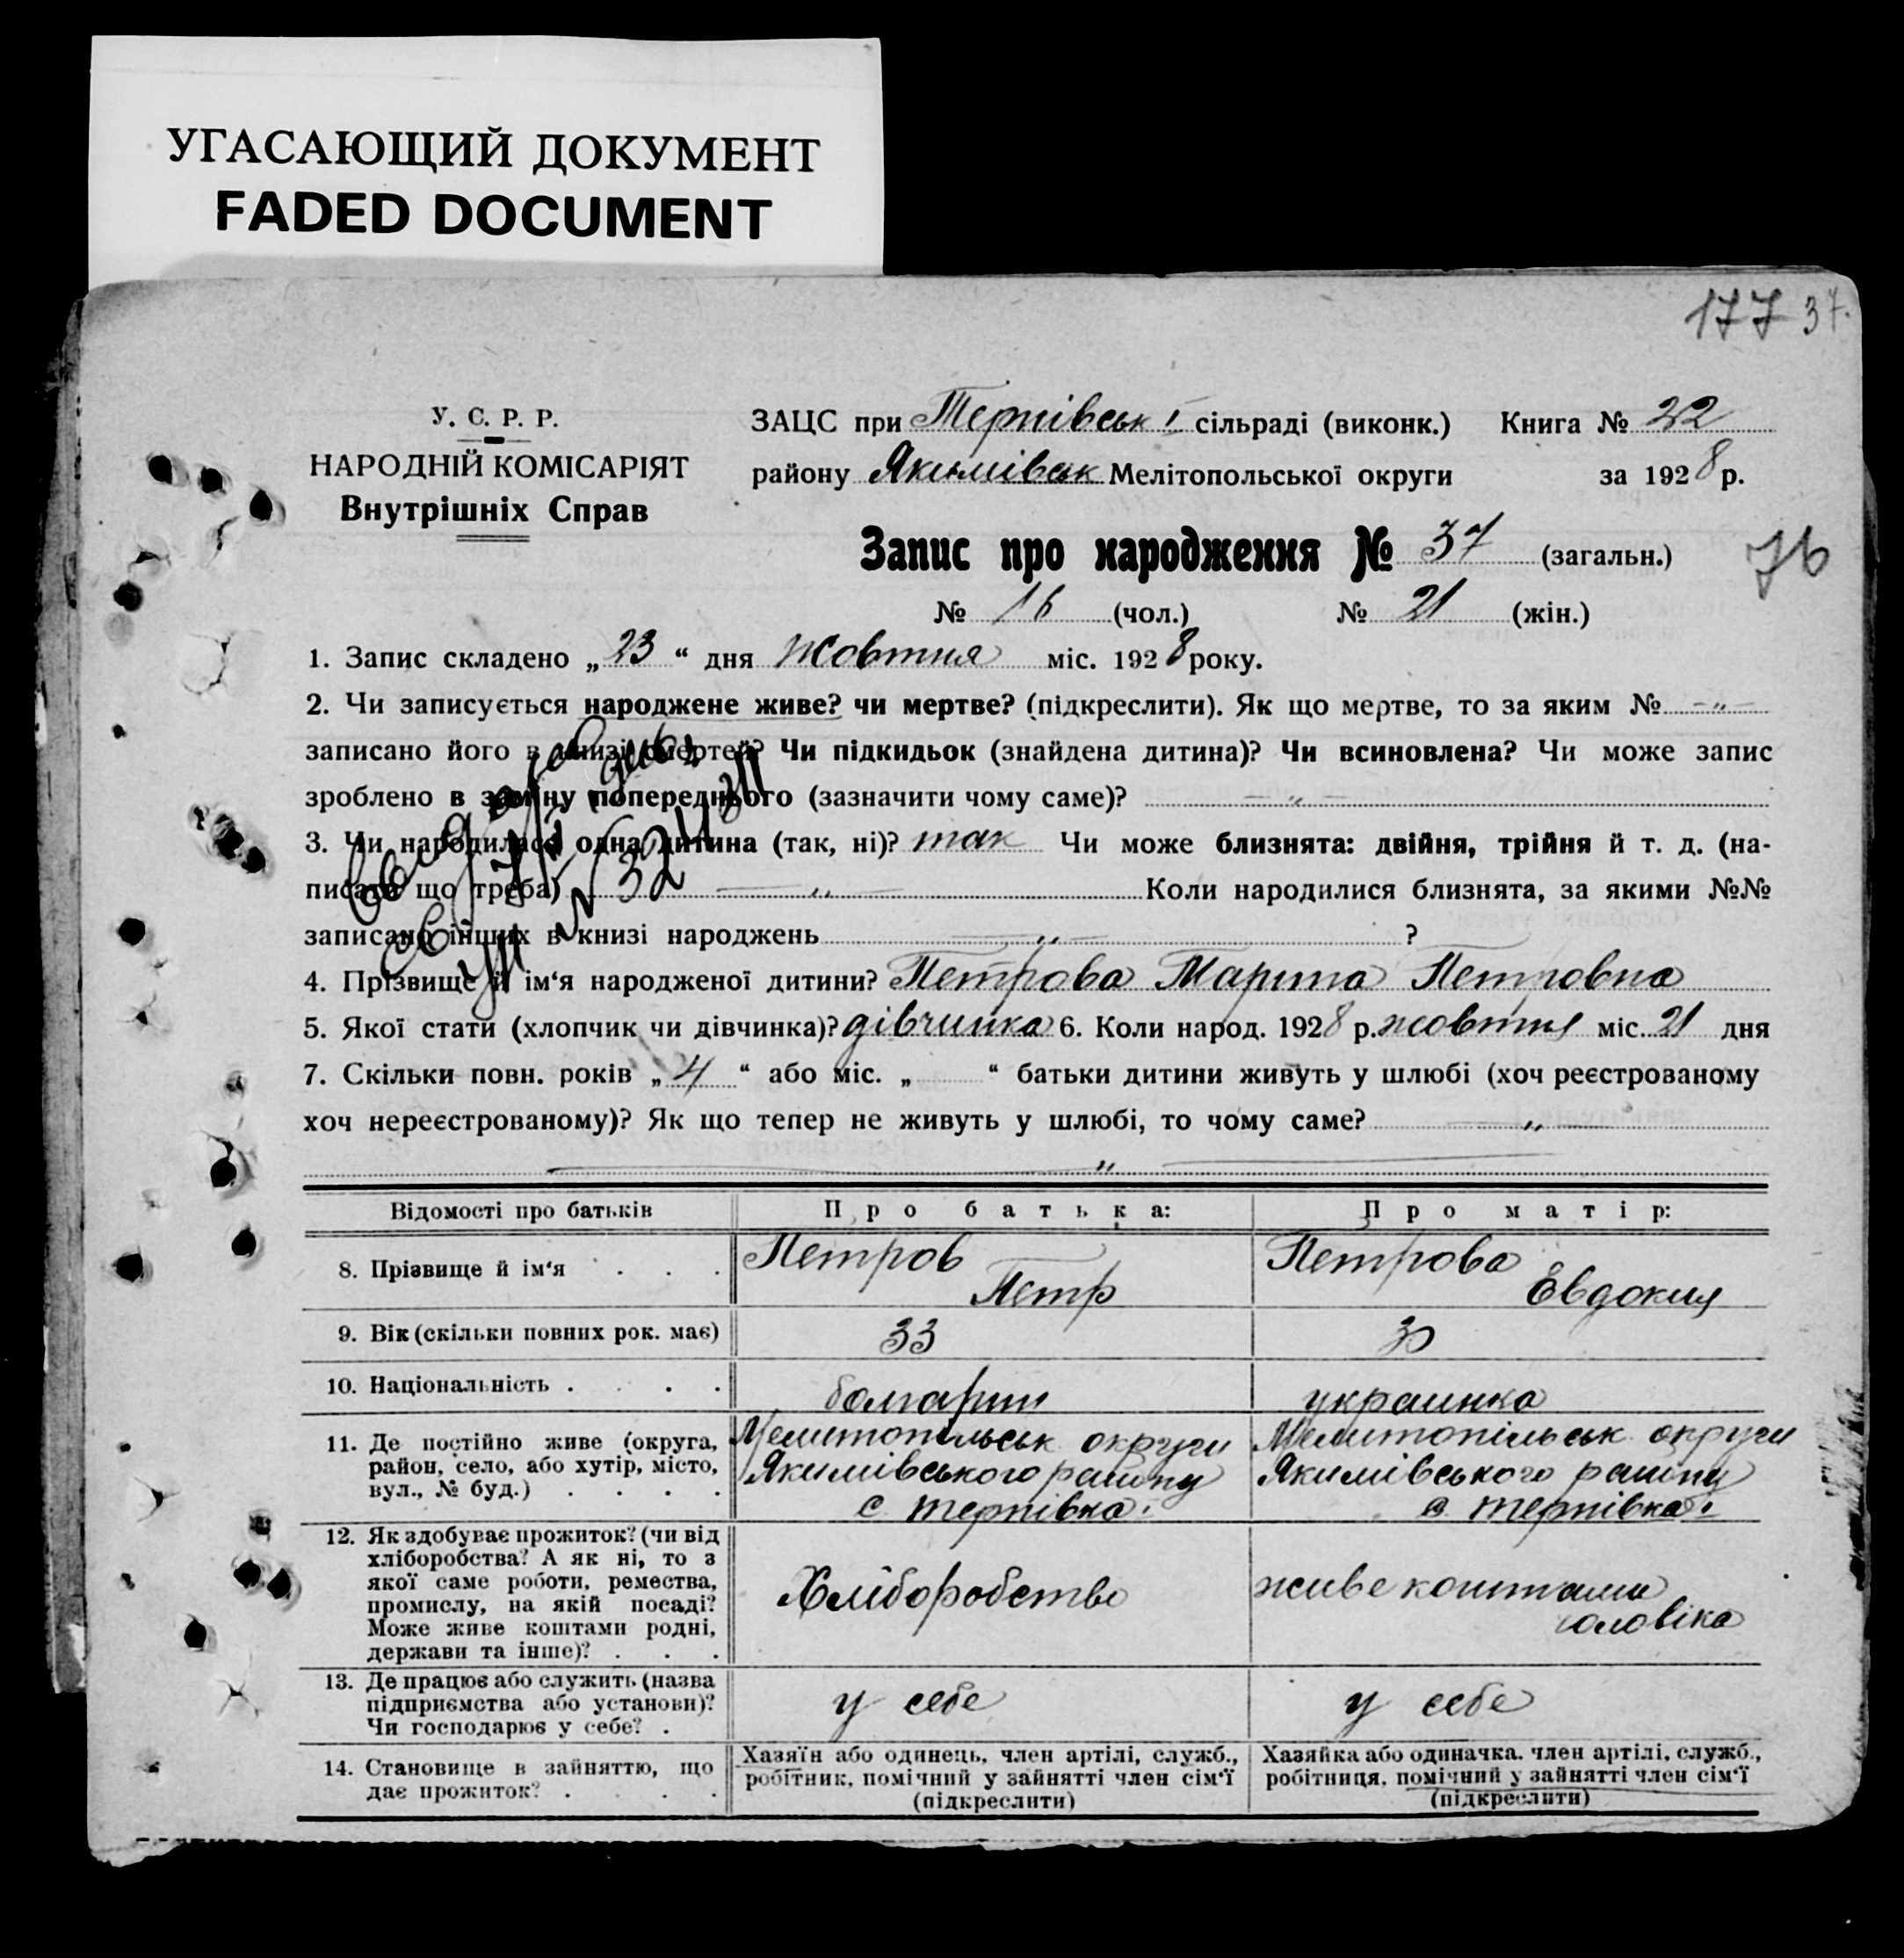 УГАСАЮЩИЙ ДОКУМЕНТ
FADED DOCUMENT
177 37.
У. С. Р. Р.
НАРОДНІЙ КОМІСАРІЯТ
Внутрішніх Справ
ЗАЦС при Терпівськ І сільраді (виконк.) Книга № 22
району Якимівськ Мелітопольської округи за 1928 р.
Запис про народження № 37 (загальн.)
76
№ 16 (чол.) № 21 (жін.)
1. Запис складено „23“ дня Жовтня міс. 1928 року.
2. Чи записується народжене живе? чи мертве? (підкреслити). Як що мертве, то за яким № -„-
записано його в книзі смертей? Чи підкидьок (знайдена дитина)? Чи всиновлена? Чи може запис
зроблено в заміну попереднього (зазначити чому саме)? -„-
3. Чи народилася одна дитина (так, ні)? так Чи може близнята: двійня, трійня й т. д. (на-
писати що треба) -„- Коли народилися близнята, за якими №№
записано інших в книзі народжень -„- ?
4. Прізвище й ім‘я народженої дитини? Петрова Марина Петровна
5. Якої стати (хлопчик чи дівчинка)? дівчинка 6. Коли народ. 1928 р. жовтня міс. 21 дня
7. Скільки повн. років „4“ або міс. „ “ батьки дитини живуть у шлюбі (хоч реєстрованому
хоч нереєстрованому)? Як що тепер не живуть у шлюбі, то чому саме? -„-
-„-
Відомості про батьків Про батька: Про матір:
8. Прізвище й ім‘я . . . Петров Петр Петрова Евдокия
9. Вік (скільки повних рок. має) 33 30
10. Національність . . . . болгарин украинка
11. Де постійно живе (округа, район, село, або хутір, місто, вул., № буд.) . . . .
Мелитопільськ округи
Якимівського району
с Терпівка І
Мелитопільськ округи
Якимівського району
с Терпівка І
12. Як здобуває прожиток? (чи від хліборобства? А як ні, то з якої саме роботи, ремества, промислу, на якій посаді? Може живе коштами родні, держави та інше)? . . .
Хліборобство
живе коштами
чоловіка
13. Де працює або служить (назва підприємства або установи)? Чи господарює у себе? .
у себе
у себе
14. Становище в зайняттю, що дає прожиток? . . . .
Хазяїн або одинець, член артілі, служб., робітник, помічний у зайнятті член сім‘ї (підкреслити)
Хазяйка або одиначка. член артілі, служб., робітниця, помічний у зайнятті член сім‘ї (підкреслити)